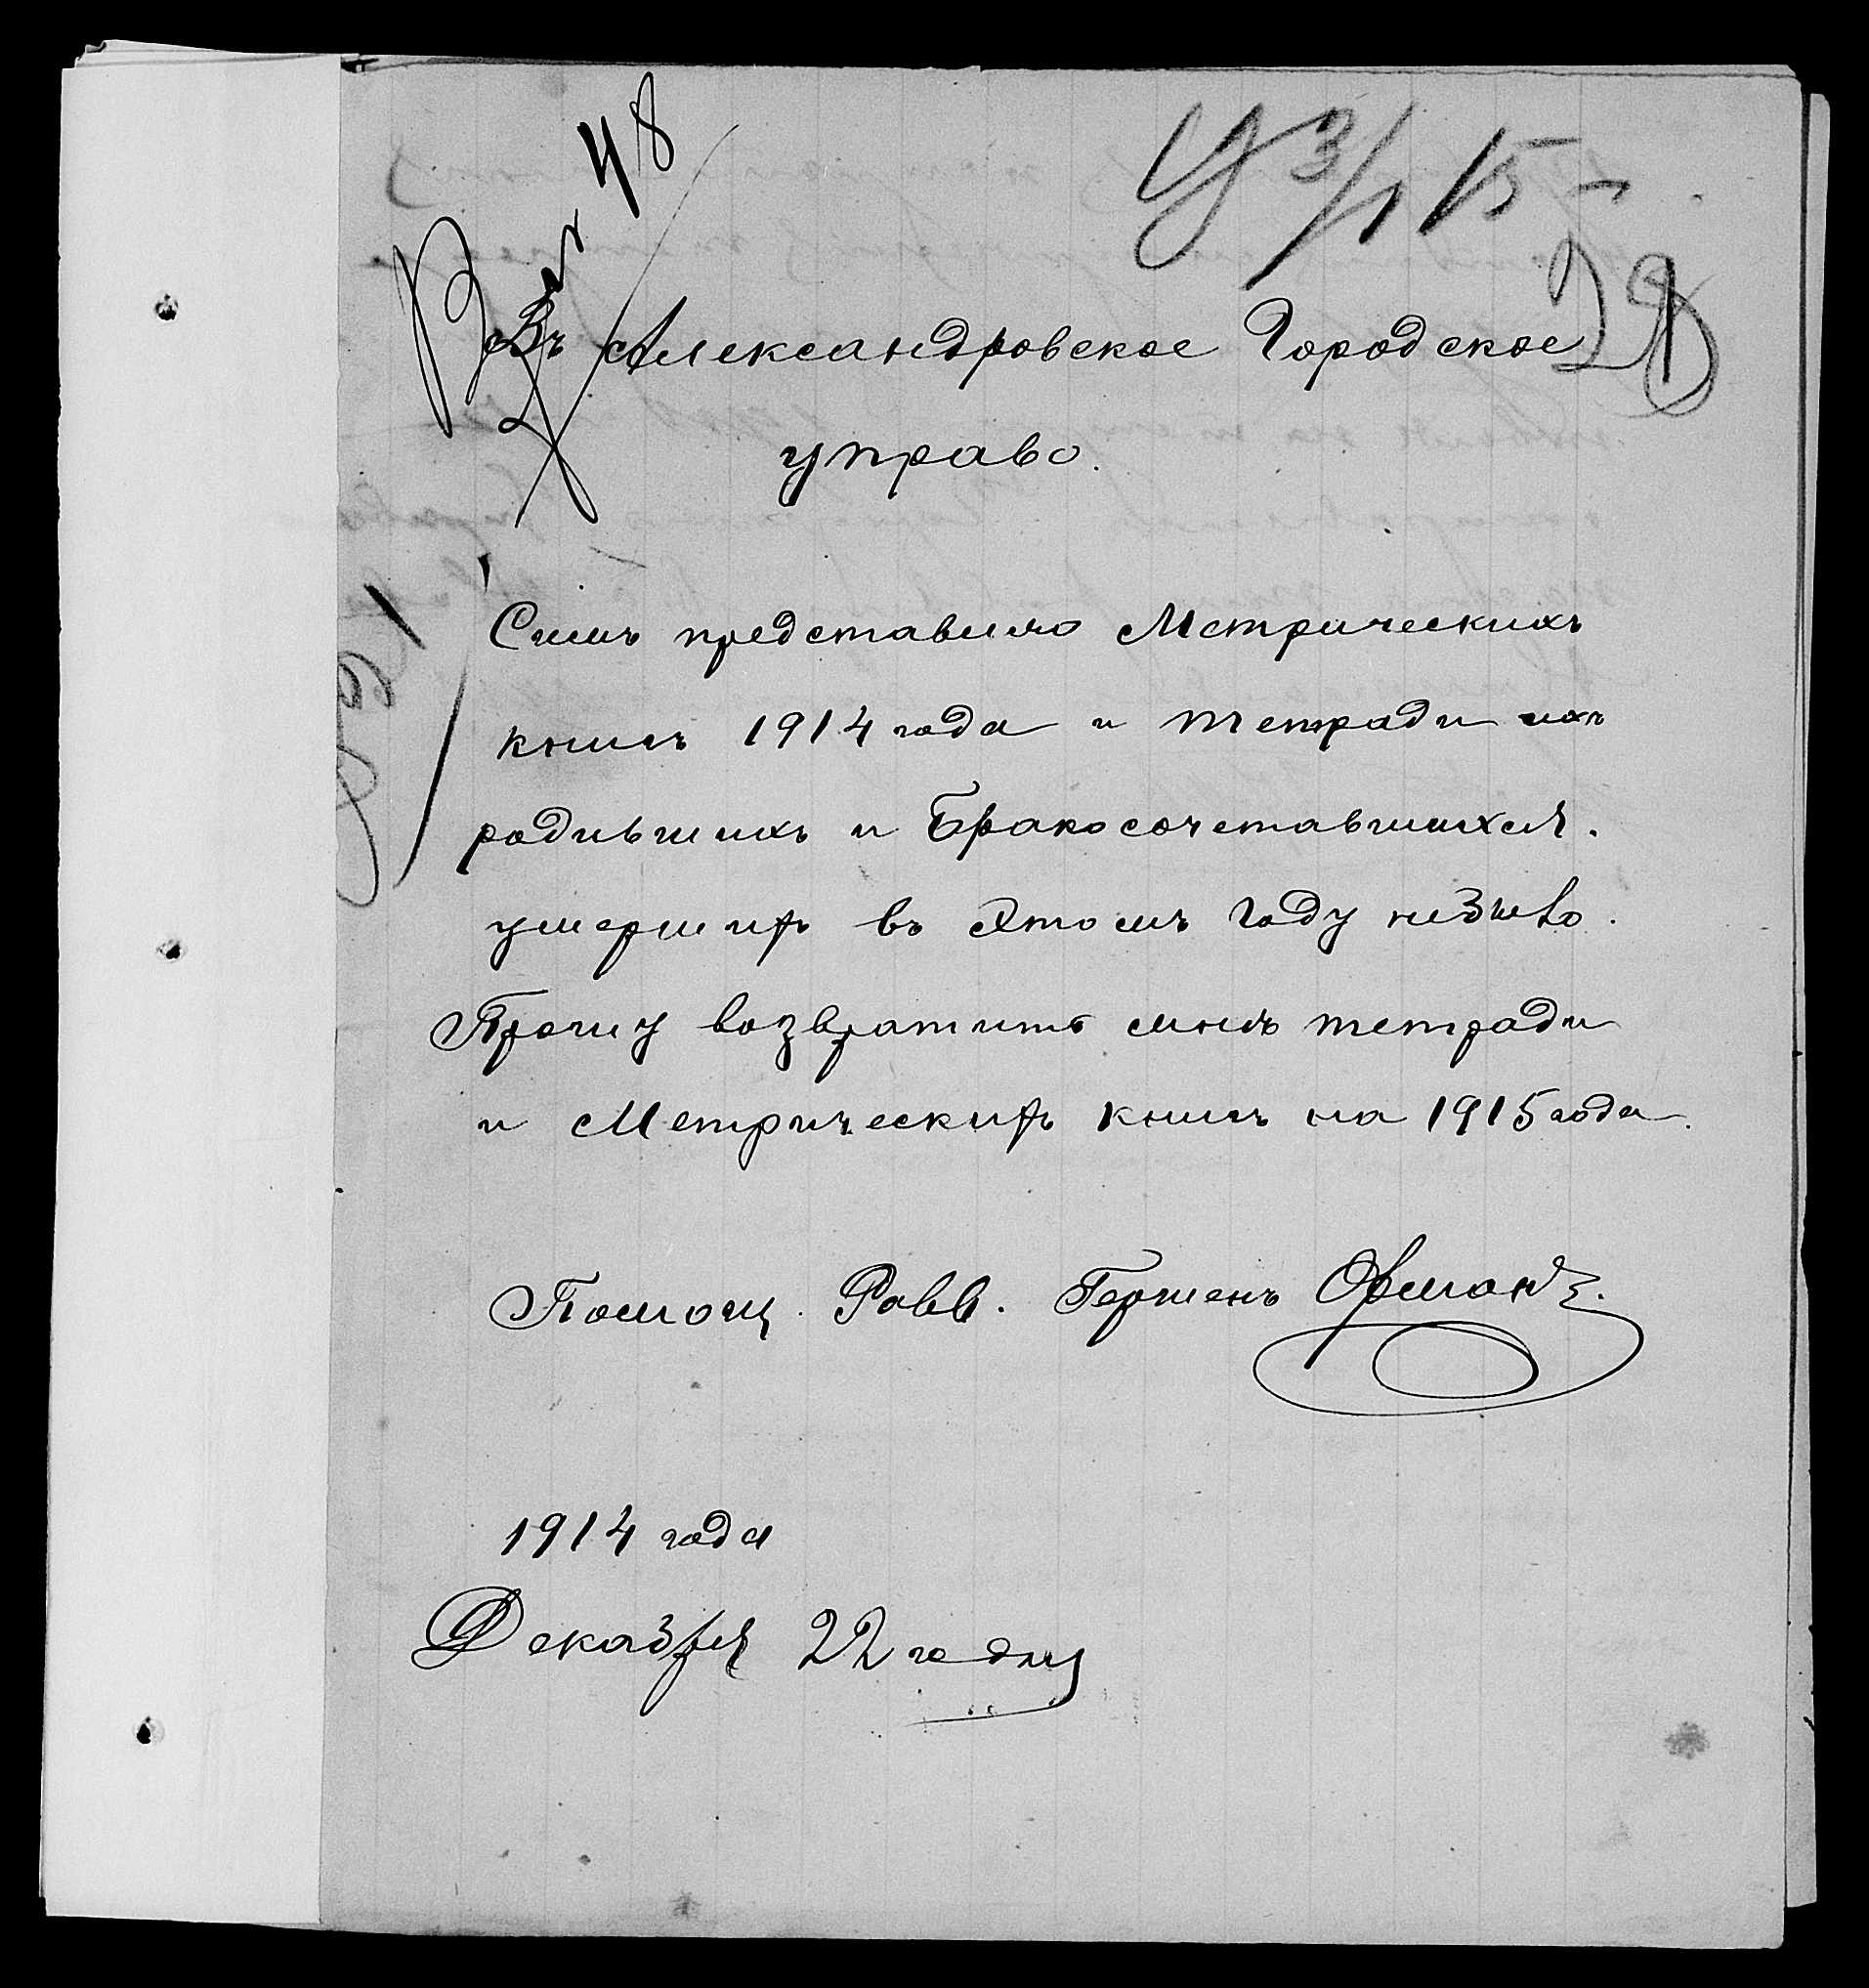 48
У 3/1 15 –
28
Въ Александровское Городское
управо.
Симъ представимо Метрическихъ
книгъ 1914 года и тетради ихъ
родившихъ и Бракосочетавшихся.
умершихъ въ Этомъ Году небыло.
Прошу возвратить мнѣ тетради
и Метрическихъ книгъ на 1915 года.
Помощ. Равв. Гершенъ Офманъ.
1914 года
Декабря 22 го дня